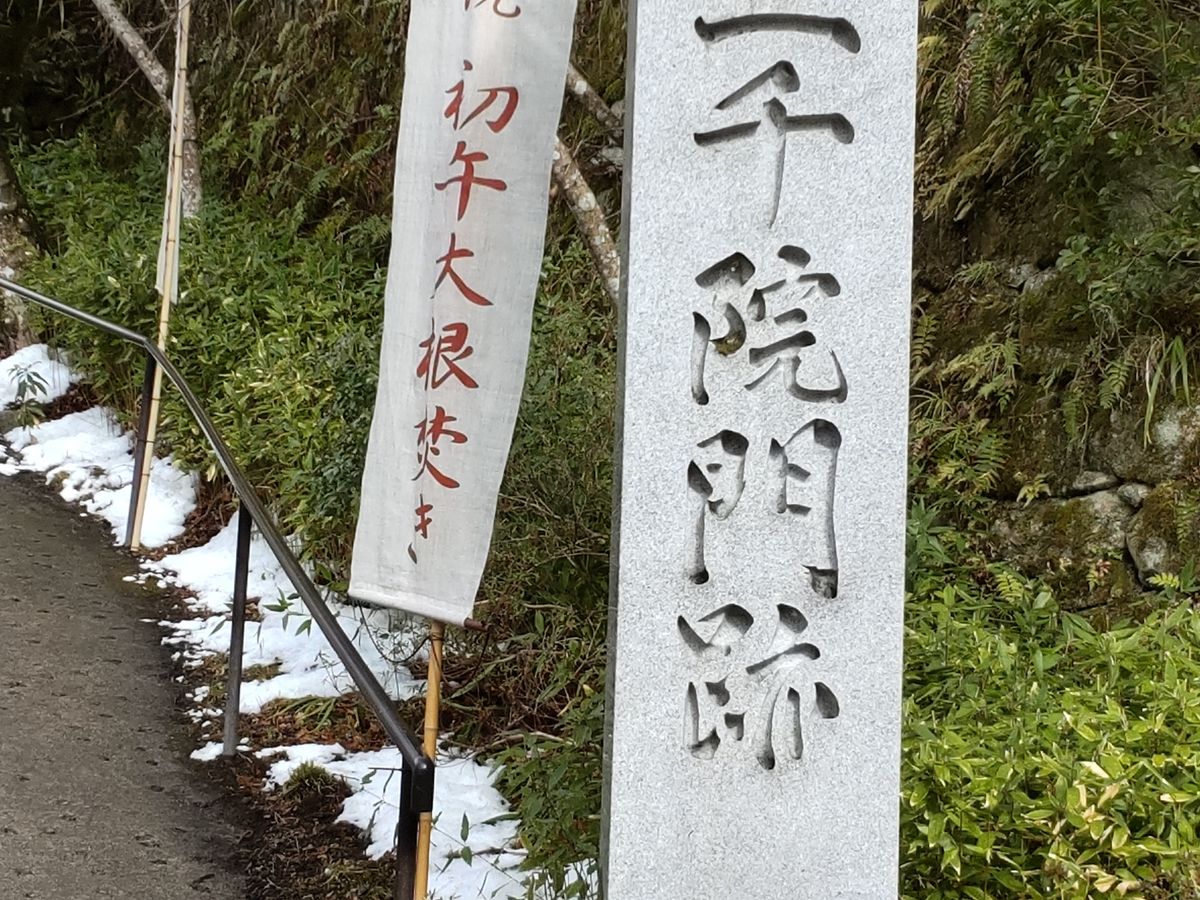 千院門跡
初午大根焚き